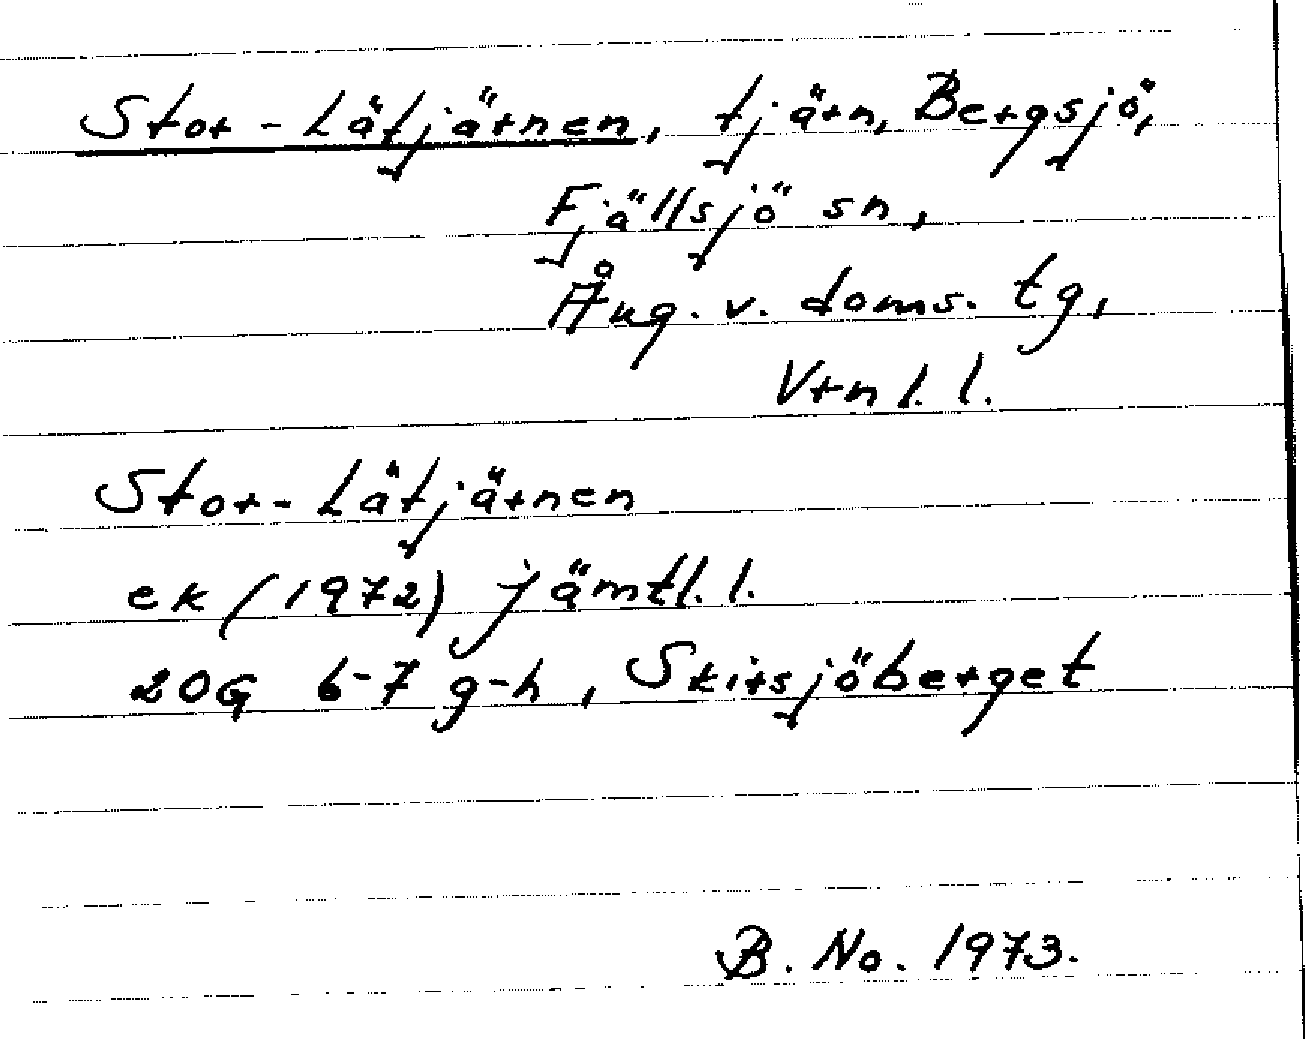 Stor-Lätjärnen, tjärn, Bergsjö,
Fjällsjö sn,
Ång. v. doms. tg,
Vrnl. l.
Stor-Lätjärnen
ek (1972) Jämtl. l.
20G 6-7 g-h, Skirsjöberget
B. No. 1973.